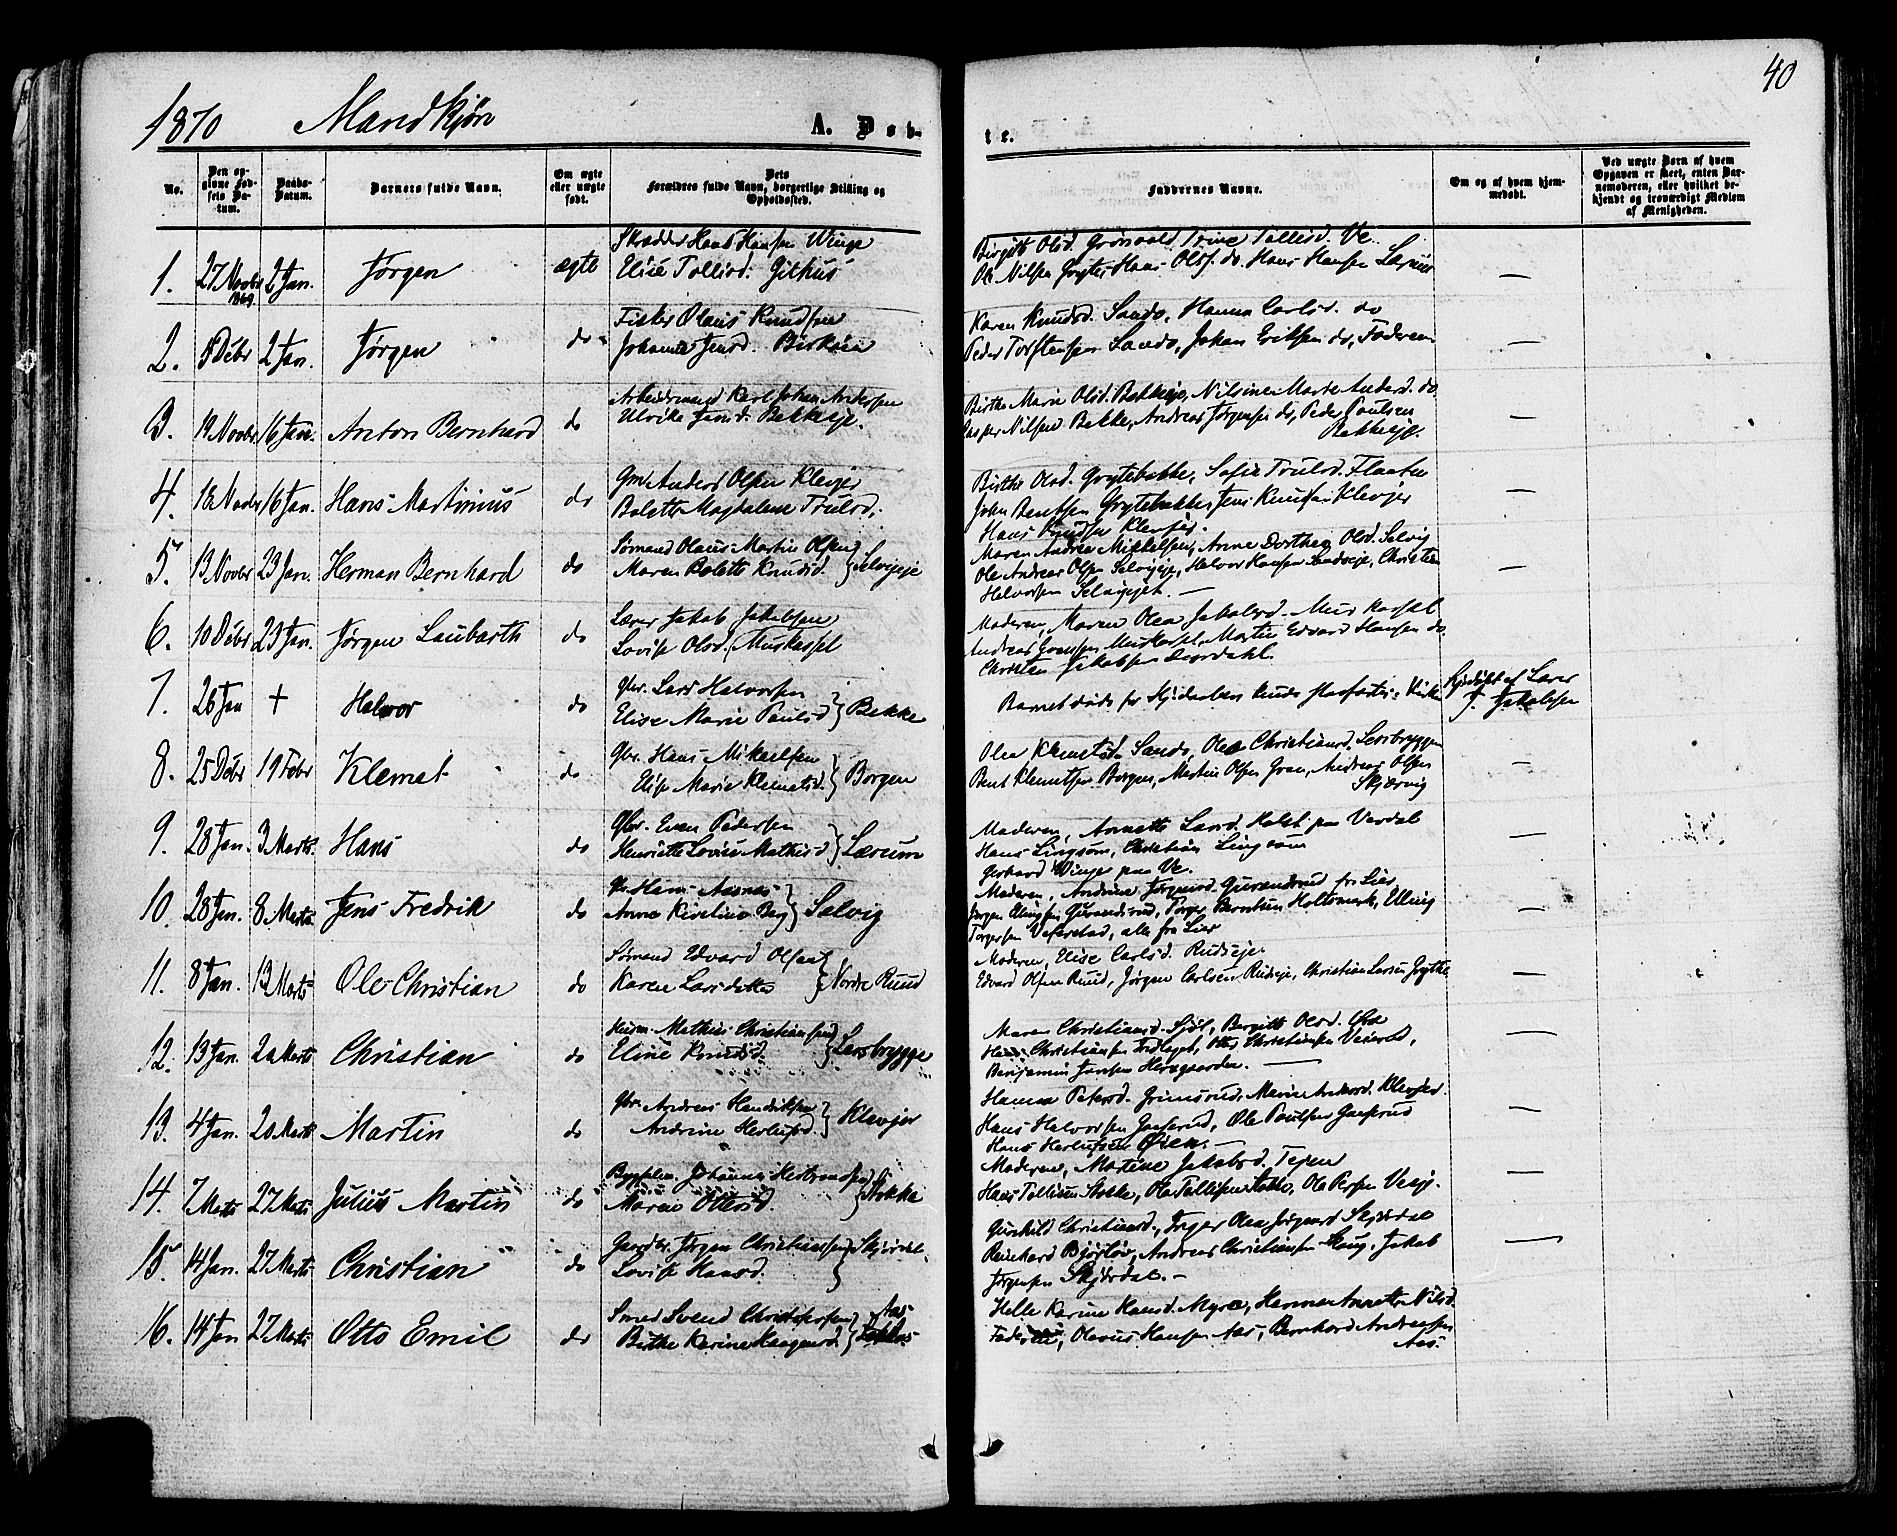 1870 Mandkjøn A. Døb-
te. 40
No. Den opgivne Fødsels Datum. Daabs-Datum. Barnets fulde Navn. Om ægte eller uægte født. Dets Forældres fulde Navn, borgerlige Stilling og Opholdssted. Faddernes Navne. Om og af hvem hjemmedøbt. Ved uægte Børn af hvem Opgaven er skeet, enten Barnemoderen, eller hvilket bekjendt og troværdigt Medlem af Menigheden.
1. 27 Novbr 1869 2 Jan. Jørgen ægte Skrædder Hans Hansen Winge
Elise Tollisd. Githus
Birgitte Olsd. Grønvold Trine Tollisd. Ve
Ole Nilsen Hans Olsf. do. Hans Hansen —
2. 8 Debr 2 Jan. Jørgen do Fisker Olaus Knudsen
Johanne Jensd.
Karen Knudsd. Sando, Hanna Carlsd. do
Peder Torstensen Sando, Johan Eriksen do, Faderen —
3. 19 Novbr 16 Jan. Anton Bernhard do Arbeidsmand Karl Johan Andersen
Ulrike Jensd. Bekkeje.
Birthe Marie Olsd. Bekkeje, Nilsine Marte Andersd. do
Casper Nilsen Bekke, Andreas Jørgensen do, Peder Poulsen
Bekkeje. —
4. 18 Novbr 16 Jan. Hans Martinius do Gm. Anders Olsen Klevjer
Bolette Magdalene Trulsd.
Birthe Olsd. Grytebekke, Sofie Trulsd. Flaaten
John Berntsen Grytebekke, Jens Knudsen Klevjer
Hans Knudsen Klevjer. —
5. 13 Novbr 23 Jan. Herman Bernhard do Sømand Olaus Martin Olsen
Maren Bolette Knudsd. Selvigeje
Maren Andrea Mikkelsen, Anne Dorthea Olsd. Selvig
Ole Andreas Olsen Selvigeje, Halvor Hansen Sandseje, Christen
Halvorsen Selvigejet. — —
6. 10 Debr 23 Jan. Jørgen Laubarth do Lærer Jakob Jakobsen
Lovise Olsd. Muskassel
Moderen, Maren Olea Jakobsd. Muskassel
Andreas Muskassel, Martin Edvard Hansen do.
Christen Jakobsen
7. 26 Jan + Halvor do Gbr. Lars Halvorsen
Elise Marie Paulsd Bekke
Barnet døde før Hjemmedøbt af Lærer
J. Jakobsen
8. 25 Debr 19 Febr Klemet do Gbr. Hans Mikaelsen
Elise Marie Klemetsd. Borgen
Olea Klemetsd. Sando, Olea Christiansd. Lersbryggen
Bent Klemetsen Borgen, Martin Olsen Gran, Andreas Olsen
Skjærvig —
9. 28 Jan. 3 Marts. Hans do Gbr. Even Pedersen
Henriette Lovise Mathisd Lærum
Moderen, Annette Larsd. Holst paa Verdal
Hans Lingsom, Christian Lingsom
Gerhard Winge paa Ve. —
10. 28 Jan. 8 Marts Jens Fredrik do Hans Aasnes
Anne Kirstine Berg Selvig
Moderen, Andrine Jørgensd. fra Lier
Jørgen Torger Berntsen Holtsmark, Ulrig
Torgersen alle fra Lier —
11. 8 Jan. 13 Marts Ole Christian do Sømand Edvard Olsen
Karen Larsdatter Nordre Ruud
Moderen, Elise Carlsd. Rudseje.
Edvard Olsen Ruud, Jørgen Carlsen Rudseje, Christian Larsen Grytte —
12. 13 Jan. 20 Marts Christian do Husm. Mathias Christiansen
Eline Knudsd. Lersbrygge
Maren Christiansd. Sjøl, Bergitte Olsd.
Hans Christiansen Otto Christiansen Veiered,
Benjamin Jansen Herngaarden. — —
13. 4 Jan. 20 Marts Martin do Gbr. Andreas Hendriksen
Andrine Herlufsd. Klevjer
Hanna Petersd. Grimsrud, Marie Andersd. Klevjer.
Hans Halvorsen Gaserud, Ole Paulsen Gaserud
Hans Herlufsen Øien. — —
14. 7 Marts 27 Marts Julius Martin do Johannes
Maren Ottersd. Stokke
Moderen, Martine Jakobsd. Tejen
Hans Tollisen Stokke, Ole Tollisen Ole Persen Veseje. —
15. 14 Jan. 27 Marts Christian do Gaardbr. Jørgen Christiansen Skjørdal
Lovise Hansd.
Gunhild Christiansd., Inger Olea Jørgensd Skjørdal
Reinhard Bjørløv, Andreas Christiansen Haug, Jakob
Jørgensen Skjørdal. — —
16. 14 Jan 27 Marts Otto Emil do Smed Svend Christophersen
Birthe Karine Haagensd. Aas
Helle Karine Hansd. Myra, Hanna Annette Nilsd.
Faderen, Olavus Hansen Aas, Bernhard Andreasen
Aas.